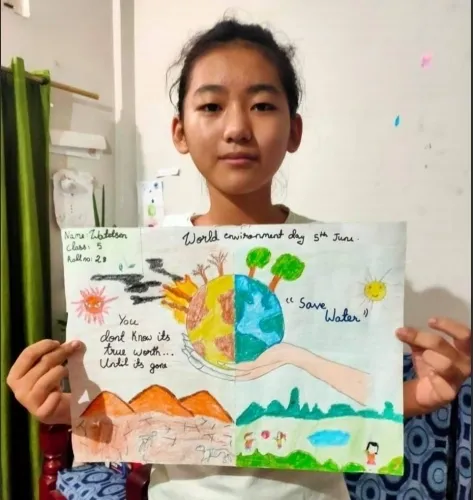 Name: Watolsen
Class: 5
Roll no: 28
World environment day 5th June.
"Save
Water"
You
dont know its
true worth...
Until its gone